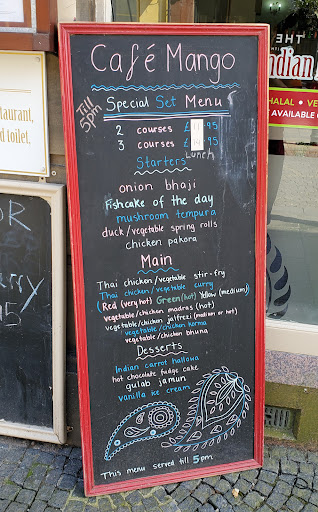 Café Mango
Till
5pm
Special Set Menu
2 courses £ .95
3 courses £ .95
Lunch
Starters
onion bhaji
Fishcake of the day
mushroom tempura
duck/vegetable spring rolls
chicken pakora
Main
Thai chicken/vegetable stir-fry
Thai chicken/vegetable curry
(Red (very hot) Green (hot) Yellow (medium))
vegetable/chicken madras (hot)
vegetable/chicken jalfrezi (medium or hot)
vegetable/chicken korma
vegetable/chicken bhuna
Desserts
Indian carrot hallowa
hot chocolate fudge cake
gulab jamun
vanilla ice cream
This menu served till 5pm
staurant,
d toilet,
OR
urry
THE
Indian
HALAL • VE
AVAILABLE